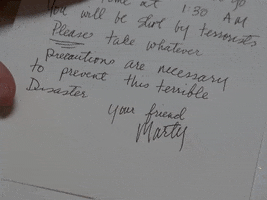 ome at 1:30 AM
You will be shot by terrorists
Please take whatever
precautions are necessary
to prevent this terrible
Disaster
your friend
Marty